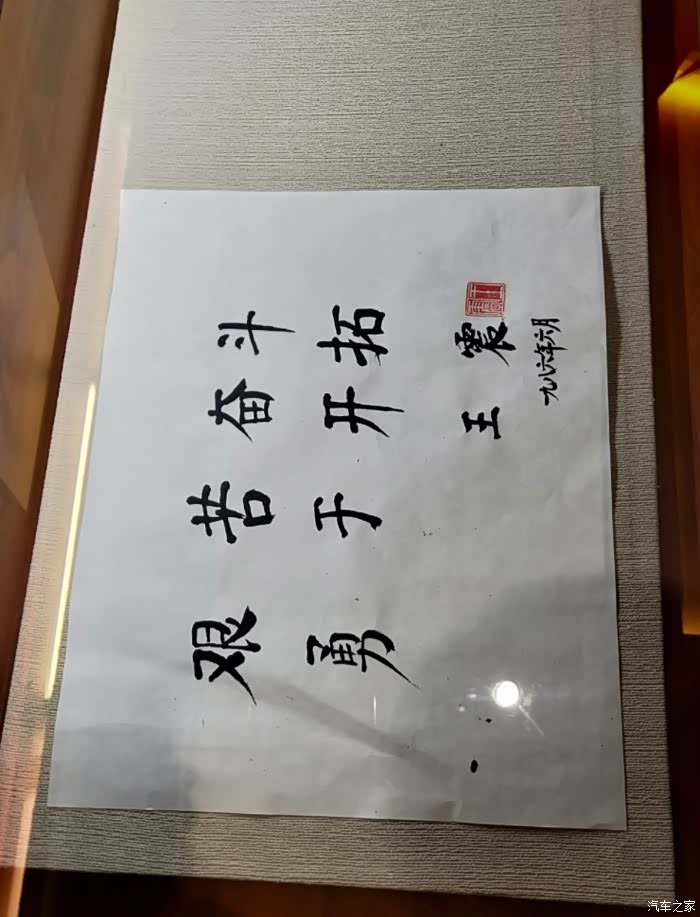 艰苦奋斗
勇于开拓
王震
一九八六年六月
汽车之家